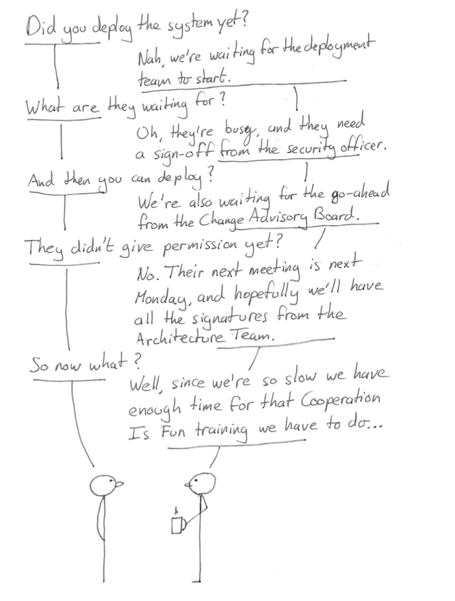 Did you deploy the system yet?
Nah, we're waiting for the deployment
team to start.
What are they waiting for?
Oh, they're busy, and they need
a sign-off from the security officer.
And then you can deploy?
We're also waiting for the go-ahead
from the Change Advisory Board.
They didn't give permission yet?
No. Their next meeting is next
Monday, and hopefully we'll have
all the signatures from the
Architecture Team.
So now what?
Well, since we're so slow we have
enough time for that Cooperation
Is Fun training we have to do...